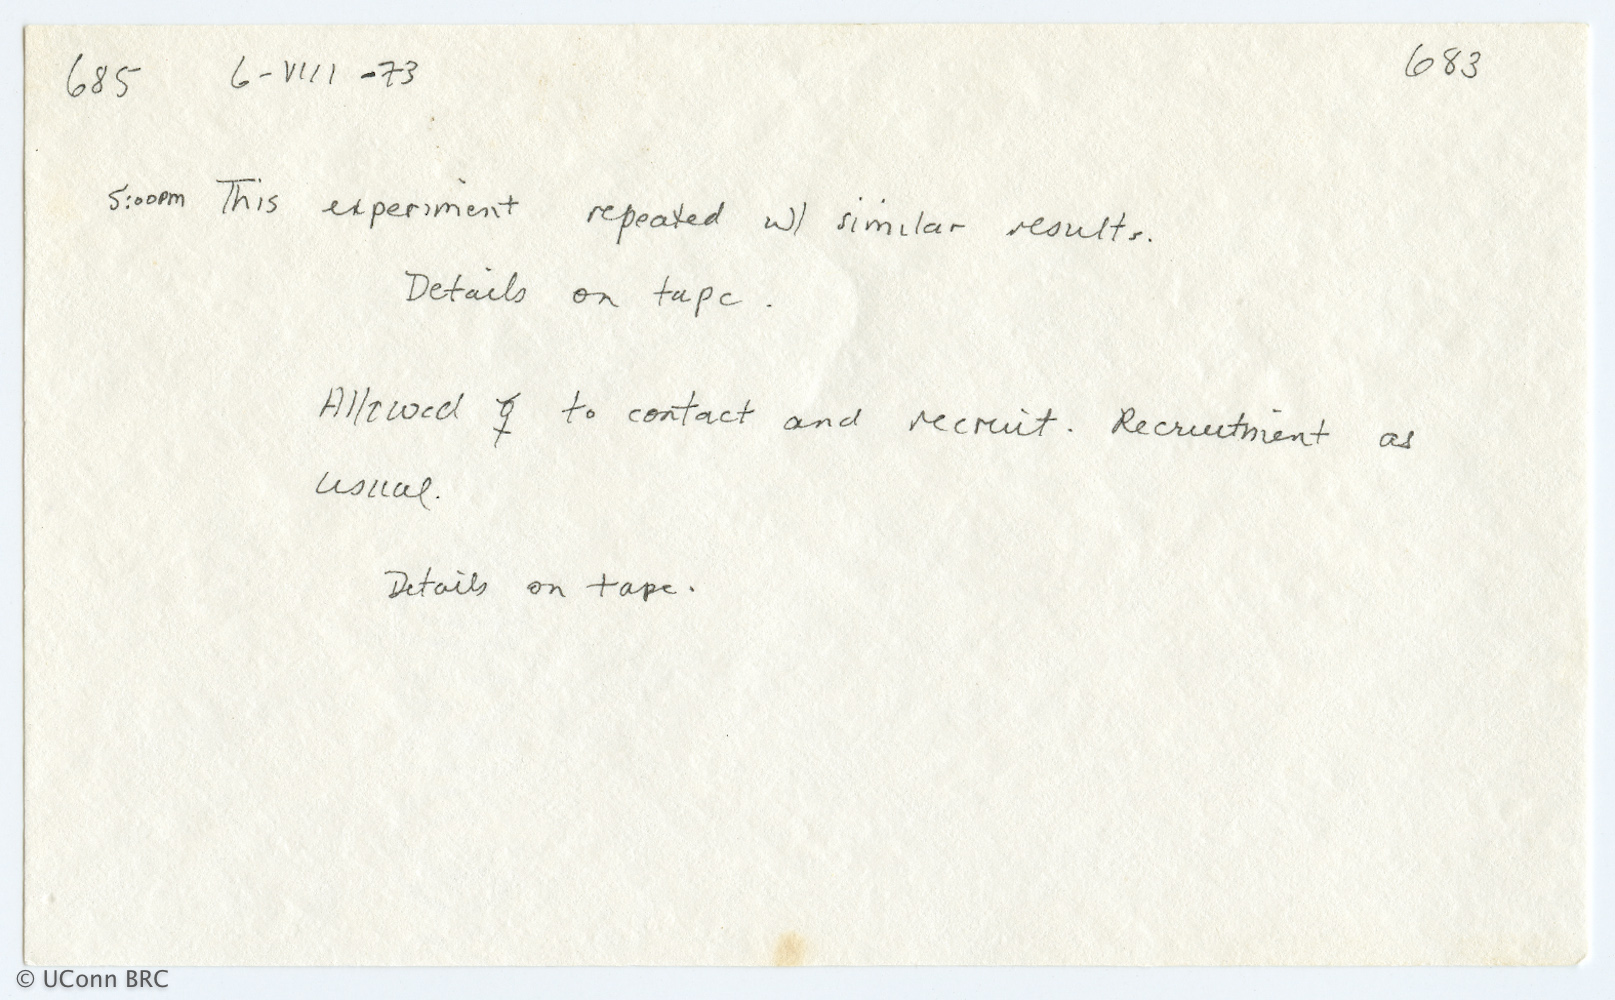 685 6-VIII-73 683
5:00pm This experiment repeated w/ similar results.
Details on tape.
Allowed ☿ to contact and recruit. Recruitment as
usual.
Details on tape.
© UConn BRC